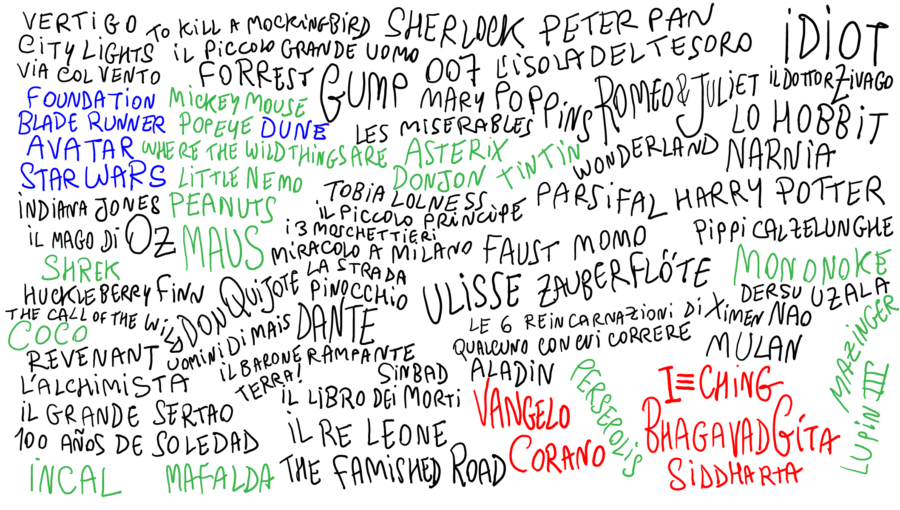 VERTIGO
TO KILL A MOCKINGBIRD
SHERLOCK
PETER PAN
IDIOT
CITY LIGHTS
IL PICCOLO GRANDE UOMO
007
L'ISOLA DEL TESORO
VIA COL VENTO
FORREST GUMP
MARY POPPINS
ROMEO & JULIET
IL DOTTOR ZIVAGO
FOUNDATION
MICKEY MOUSE
BLADE RUNNER
POPEYE
DUNE
LES MISERABLES
LO HOBBIT
AVATAR
WHERE THE WILD THINGS ARE
ASTERIX
WONDERLAND
NARNIA
STAR WARS
LITTLE NEMO
DONJON
TINTIN
TOBIA LOLNESS
PARSIFAL
HARRY POTTER
INDIANA JONES
PEANUTS
IL PICCOLO PRINCIPE
IL MAGO DI OZ
MAUS
I 3 MOSCHETTIERI
MIRACOLO A MILANO
FAUST
MOMO
PIPPI CALZELUNGHE
SHREK
LA STRADA
MONONOKE
HUCKLEBERRY FINN
DON QUIJOTE
PINOCCHIO
ULISSE
ZAUBERFLÖTE
DERSU UZALA
THE CALL OF THE WILD
COCO
UOMINI DI MAIS
DANTE
LE 6 REINCARNAZIONI DI XIMEN NAO
MAZINGER
REVENANT
IL BARONE RAMPANTE
QUALCUNO CON CUI CORRERE
MULAN
L'ALCHIMISTA
TERRA!
SINBAD
ALADIN
PERSEPOLIS
I≡CHING
LUPIN III
IL GRANDE SERTAO
IL LIBRO DEI MORTI
VANGELO
BHAGAVADGITA
100 AÑOS DE SOLEDAD
IL RE LEONE
CORANO
SIDDHARTA
INCAL
MAFALDA
THE FAMISHED ROAD